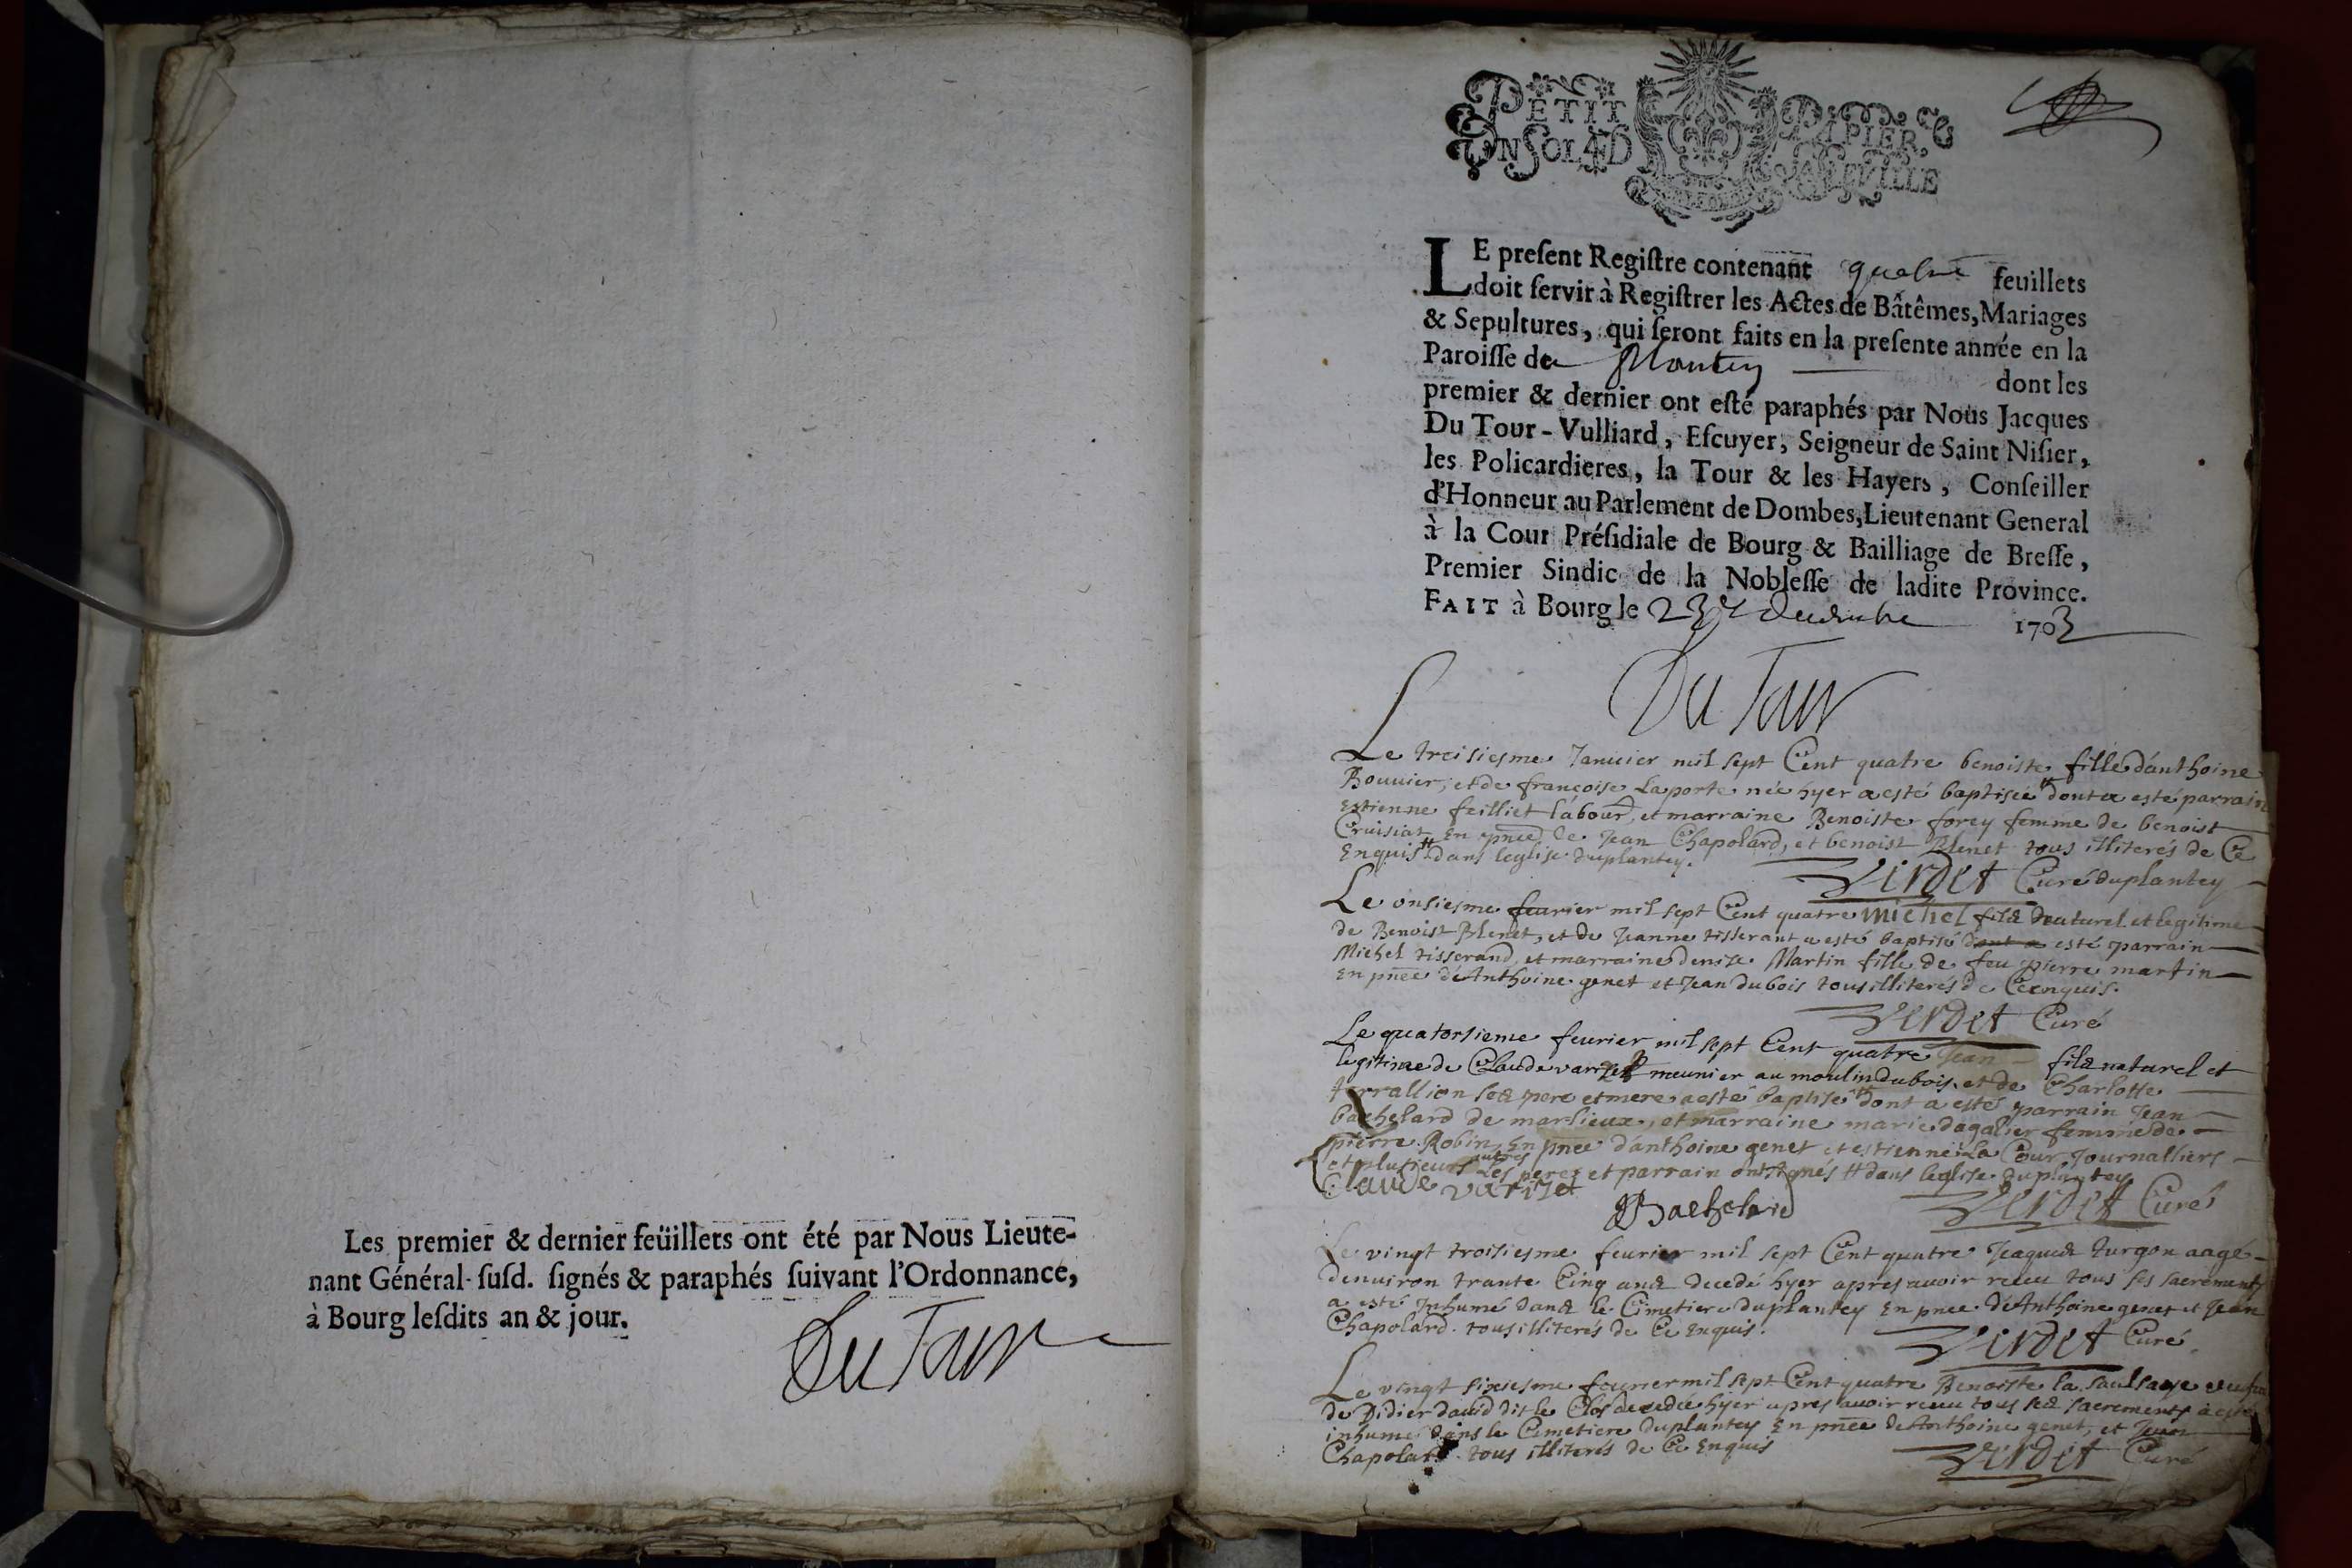 Les premier & dernier feüillets ont été par Nous Lieute-
nant Général susd. signés & paraphés suivant l'Ordonnance,
à Bourg lesdits an & jour.
Du Tour
PETIT PAPIER,
UN SOL 4 D LA FEVILLE
LE present Registre contenant quatre feuillets
doit servir à Registrer les Actes de Bâtêmes, Mariages
& Sepultures, qui seront faits en la presente année en la
Paroisse de Plantey dont les
premier & dernier ont esté paraphés par Nous Jacques
Du Tour-Vulliard, Escuyer, Seigneur de Saint Nisier,
les Policardieres, la Tour & les Hayers, Conseiller
d'Honneur au Parlement de Dombes, Lieutenant General
à la Cour Présidiale de Bourg & Bailliage de Bresse,
Premier Sindic de la Noblesse de ladite Province.
FAIT à Bourg le 23e decembre 1703
Du Tour
Le treisiesme Janvier mil sept Cent quatre benoiste fille d'anthoine
Bouvier, et de françoise Laporte née hyer a esté baptisée # dont a esté parrain
Estienne feilliet labour, et marraine Benoiste forey femme de benoist
Cruisiat En pnce de Jean Chapolard, et benoist Blenet tous illiterés de Ce
Enquis # dans leglise duplantey.
Verdet Curé duplantey
Le onsiesme feurier mil sept Cent quatre Michel fils naturel et legitime
de Benoist Blenet, et de Jeanne tisserant a esté baptisé dont a esté parrain
Michel tisserand, et marraine denise Martin fille de feu pierre martin
En pnce de Anthoine genet et Jean dubois tous illiterés de Ce enquis.
Verdet Curé
Le quatorsieme feurier mil sept Cent quatre Jean fils naturel et
legitime de Claude varizet meunier au moulin dubois, et de Charlotte
terrallion ses pere et mere a esté baptisé # dont a esté parrain Jean
bachelard de marlieux, et marraine marie dagalier femme de
pierre Robin, En pnce d'anthoine genet et estienne La Cour Journalliers
et plusieurs autres Les peres et parrain ont signés # dans leglise duplantey
Claude varizet
JBachelard
Verdet Curé
Le vingt troisiesme feurier mil sept Cent quatre Jaques turgon aagé
denuiron trante Cinq ans decedé hyer apres auoir receu tous ses sacrements
a esté Inhumé dans le Cimetiere duplantey En pnce de Anthoine genet et Jean
Chapolard tous illiterés de Ce enquis.
Verdet Curé
Le vingt sixiesme feurier mil sept Cent quatre Benoiste la saulsaye
de Didier david dit le Clos decedée hyer apres auoir receu tous ses sacrements a esté
inhumé dans le Cimetiere duplantey En pnce de Anthoine genet, et Jean
Chapolard tous illiterés de Ce Enquis
Verdet Curé